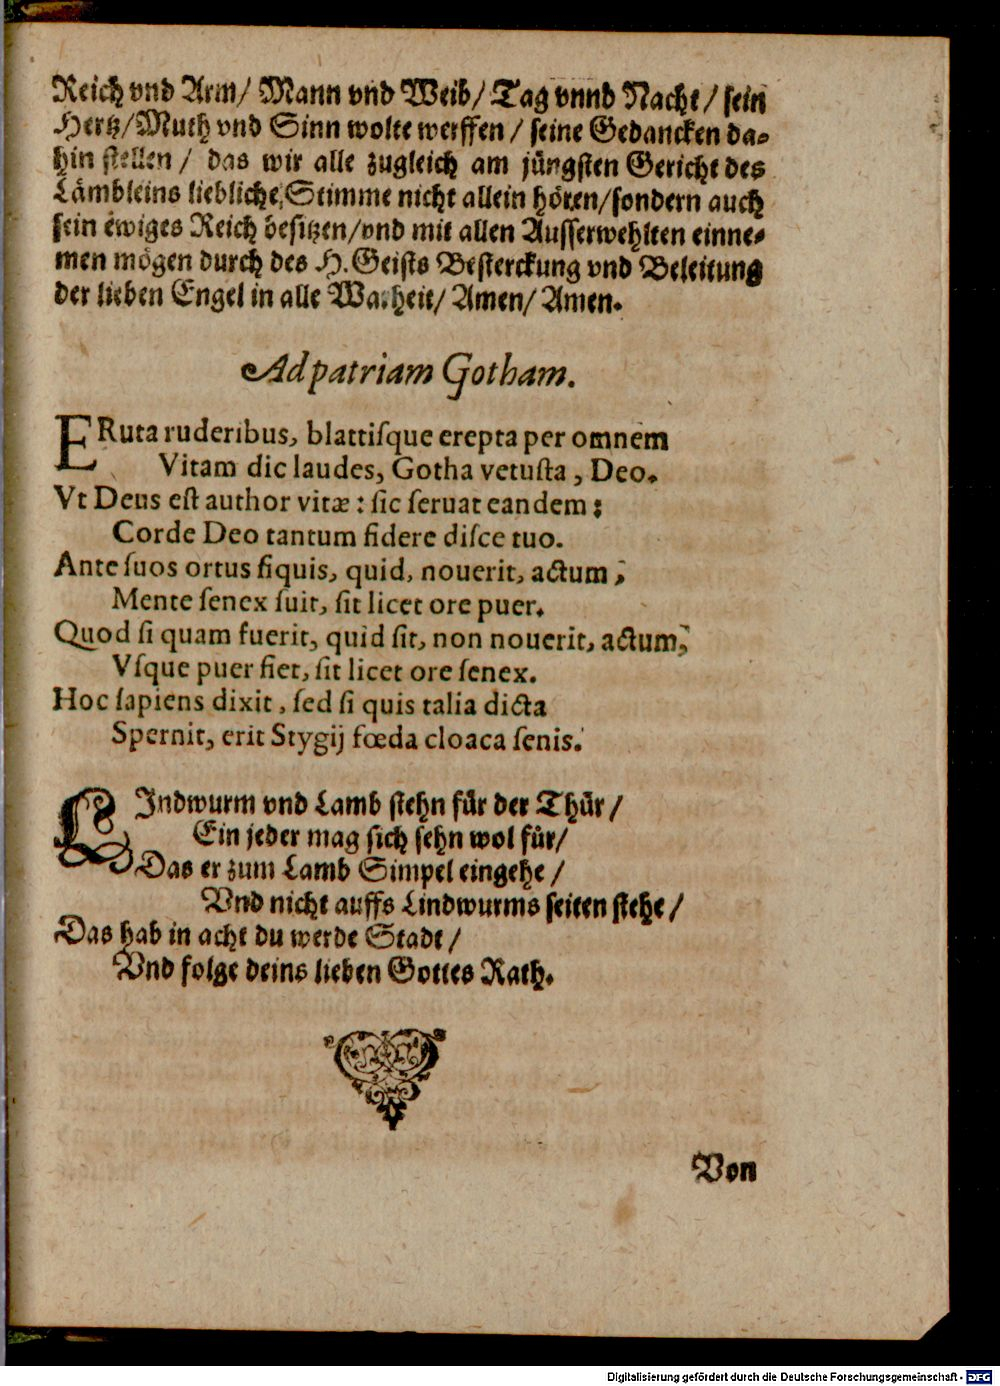 Reich vnd Arm/ Mann vnd Weib/ Tag vnnd Nacht/ sein
Hertz/Muth vnd Sinn wolte werffen/ seine Gedancken da-
hin stellen/ das wir alle zugleich am jüngsten Gericht des
Lämbleins liebliche Stimme nicht allein hören/sondern auch
sein ewiges Reich besitzen/vnd mit allen Ausserwehlten einne-
men mögen durch des H. Geists Besterckung vnd Beleitung
der lieben Engel in alle Warheit/ Amen/ Amen.
Ad patriam Gotham.
ERuta ruderibus, blattiſque erepta per omnem
Vitam dic laudes, Gotha vetuſta, Deo.
Vt Deus eſt author vitæ: ſic ſeruat eandem:
Corde Deo tantum fidere diſce tuo.
Ante ſuos ortus ſiquis, quid, nouerit, actum;
Mente ſenex fuit, ſit licet ore puer.
Quod ſi quam fuerit, quid ſit, non nouerit, actum;
Vſque puer fiet, ſit licet ore ſenex.
Hoc ſapiens dixit, ſed ſi quis talia dicta
Spernit, erit Stygij fœda cloaca ſenis.
LIndwurm vnd Lamb stehn für der Thür/
Ein jeder mag sich sehn wol für/
Das er zum Lamb Simpel eingehe/
Vnd nicht auffs Lindwurms seiten stehe/
Das hab in acht du werde Stadt/
Vnd folge deins lieben Gottes Rath.
Von
Digitalisierung gefördert durch die Deutsche Forschungsgemeinschaft - DFG